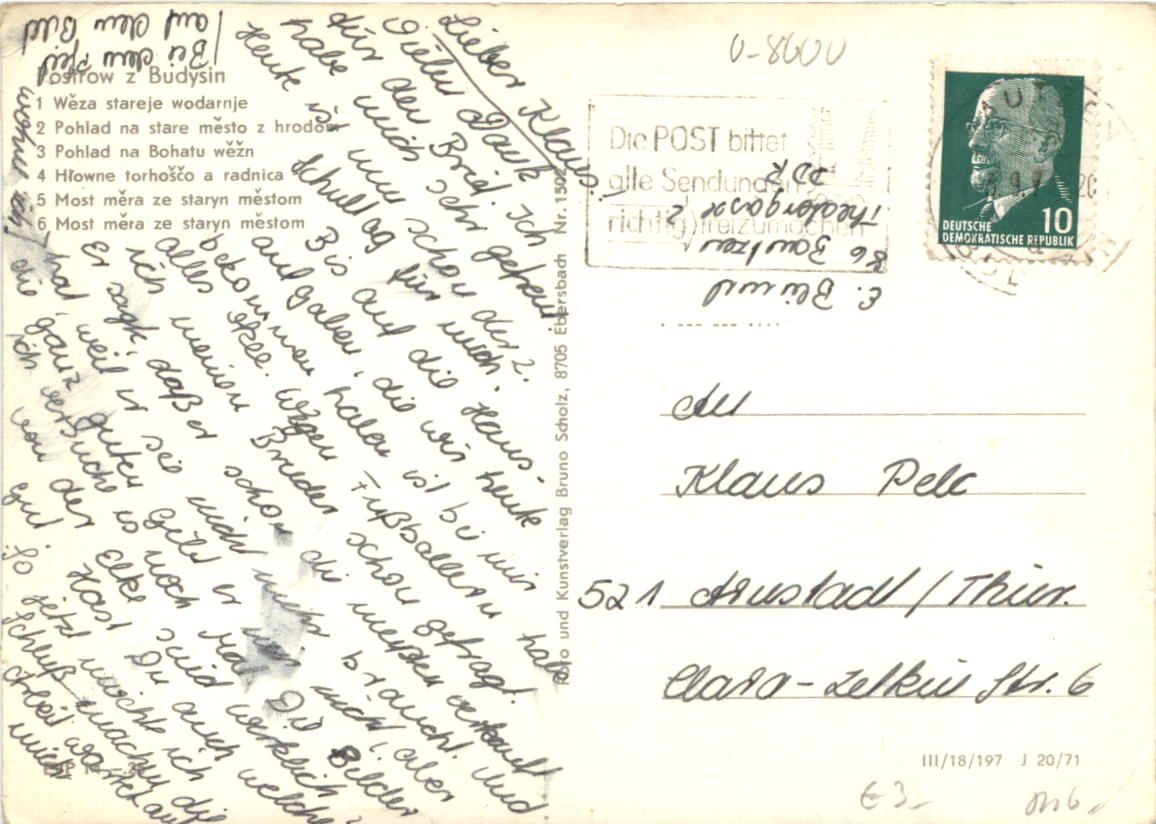 Postrow z Budyšin
1 Wěza stareje wodarnje
2 Pohlad na stare město z hrodom
3 Pohlad na Bohatu wěžn
4 Hłowne torhošćo a radnica
5 Most měra ze staryn městom
6 Most měra ze staryn městom
/Bei dem Pfeil
/auf dem Bild
wohne ich
Lieber Klaus!
Vielen Dank
für den Brief. Ich
habe mich sehr gefreut.
Heute ist nun schon der 2.
Schultag für mich.
Bis auf die Haus-
aufgaben, die wir heute
bekommen haben ist bei mir
alles okee. Wegen Fußballern habe
ich meinen Bruder schon gefragt.
Er sagt, daß er schon die meißten verkauft
hat, weil er sie nicht mehr braucht. Und
die ganz guten gibt er nicht, aber
ich versuche es noch mal. Die Bilder
von der Elke sind wirklich
gut. Hast Du auch welche?
So jetzt möchte ich
Schluß machen, die
Arbeit wartet auf
mich
Foto und Kunstverlag Bruno Scholz, 8705 Ebersbach Nr. 1502
0-8600
Die POST bittet
alle Sendungen
richtig freizumachen
DEUTSCHE
DEMOKRATISCHE REPUBLIK
10
E.
86 Bautzen
Theatergasse 2
DDR
An
Klaus Pelc
521 Arnstadt / Thür.
Clara-Zetkin Str. 6
III/18/197 J 20/71
€ 3,-